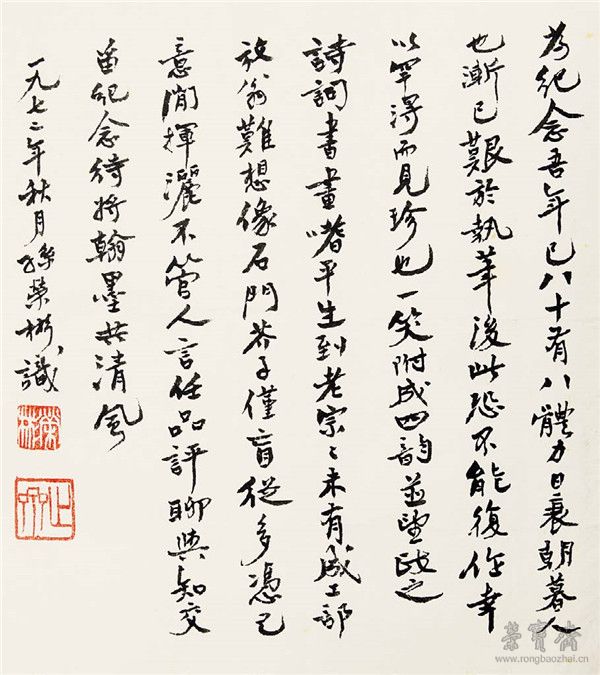 為紀念吾年已八十有八體力日衰朝暮人
也漸已艱於執筆後此恐不能復作幸
以罕得而見珍也一笑附成四韵並望政之
詩詞書畫嗜平生到老宗々未有成工部
放翁難想像石門芥子僅盲從多憑己
意閒揮灑不管人言任品評聊與知交
留紀念綺將翰墨共清風
一九七二年秋月孫榮彬識
榮彬
榮寶齋
www.rongbaozhai.cn